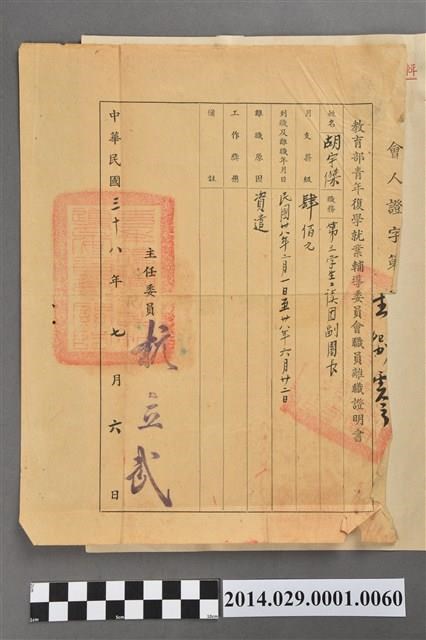 會人證字第
教育部青年復學就業輔導委員會職員離職證明書
姓名 胡宇傑 職務 第三學生
團副團長
月支薪級 肆佰元
到職及離職年月日 民國卅八年二月一日至卅八年六月廿二日
離職原因 資遣
工作獎懲
備註
主任委員 杭立武
中華民國三十八年七月六日
2014.029.0001.0060